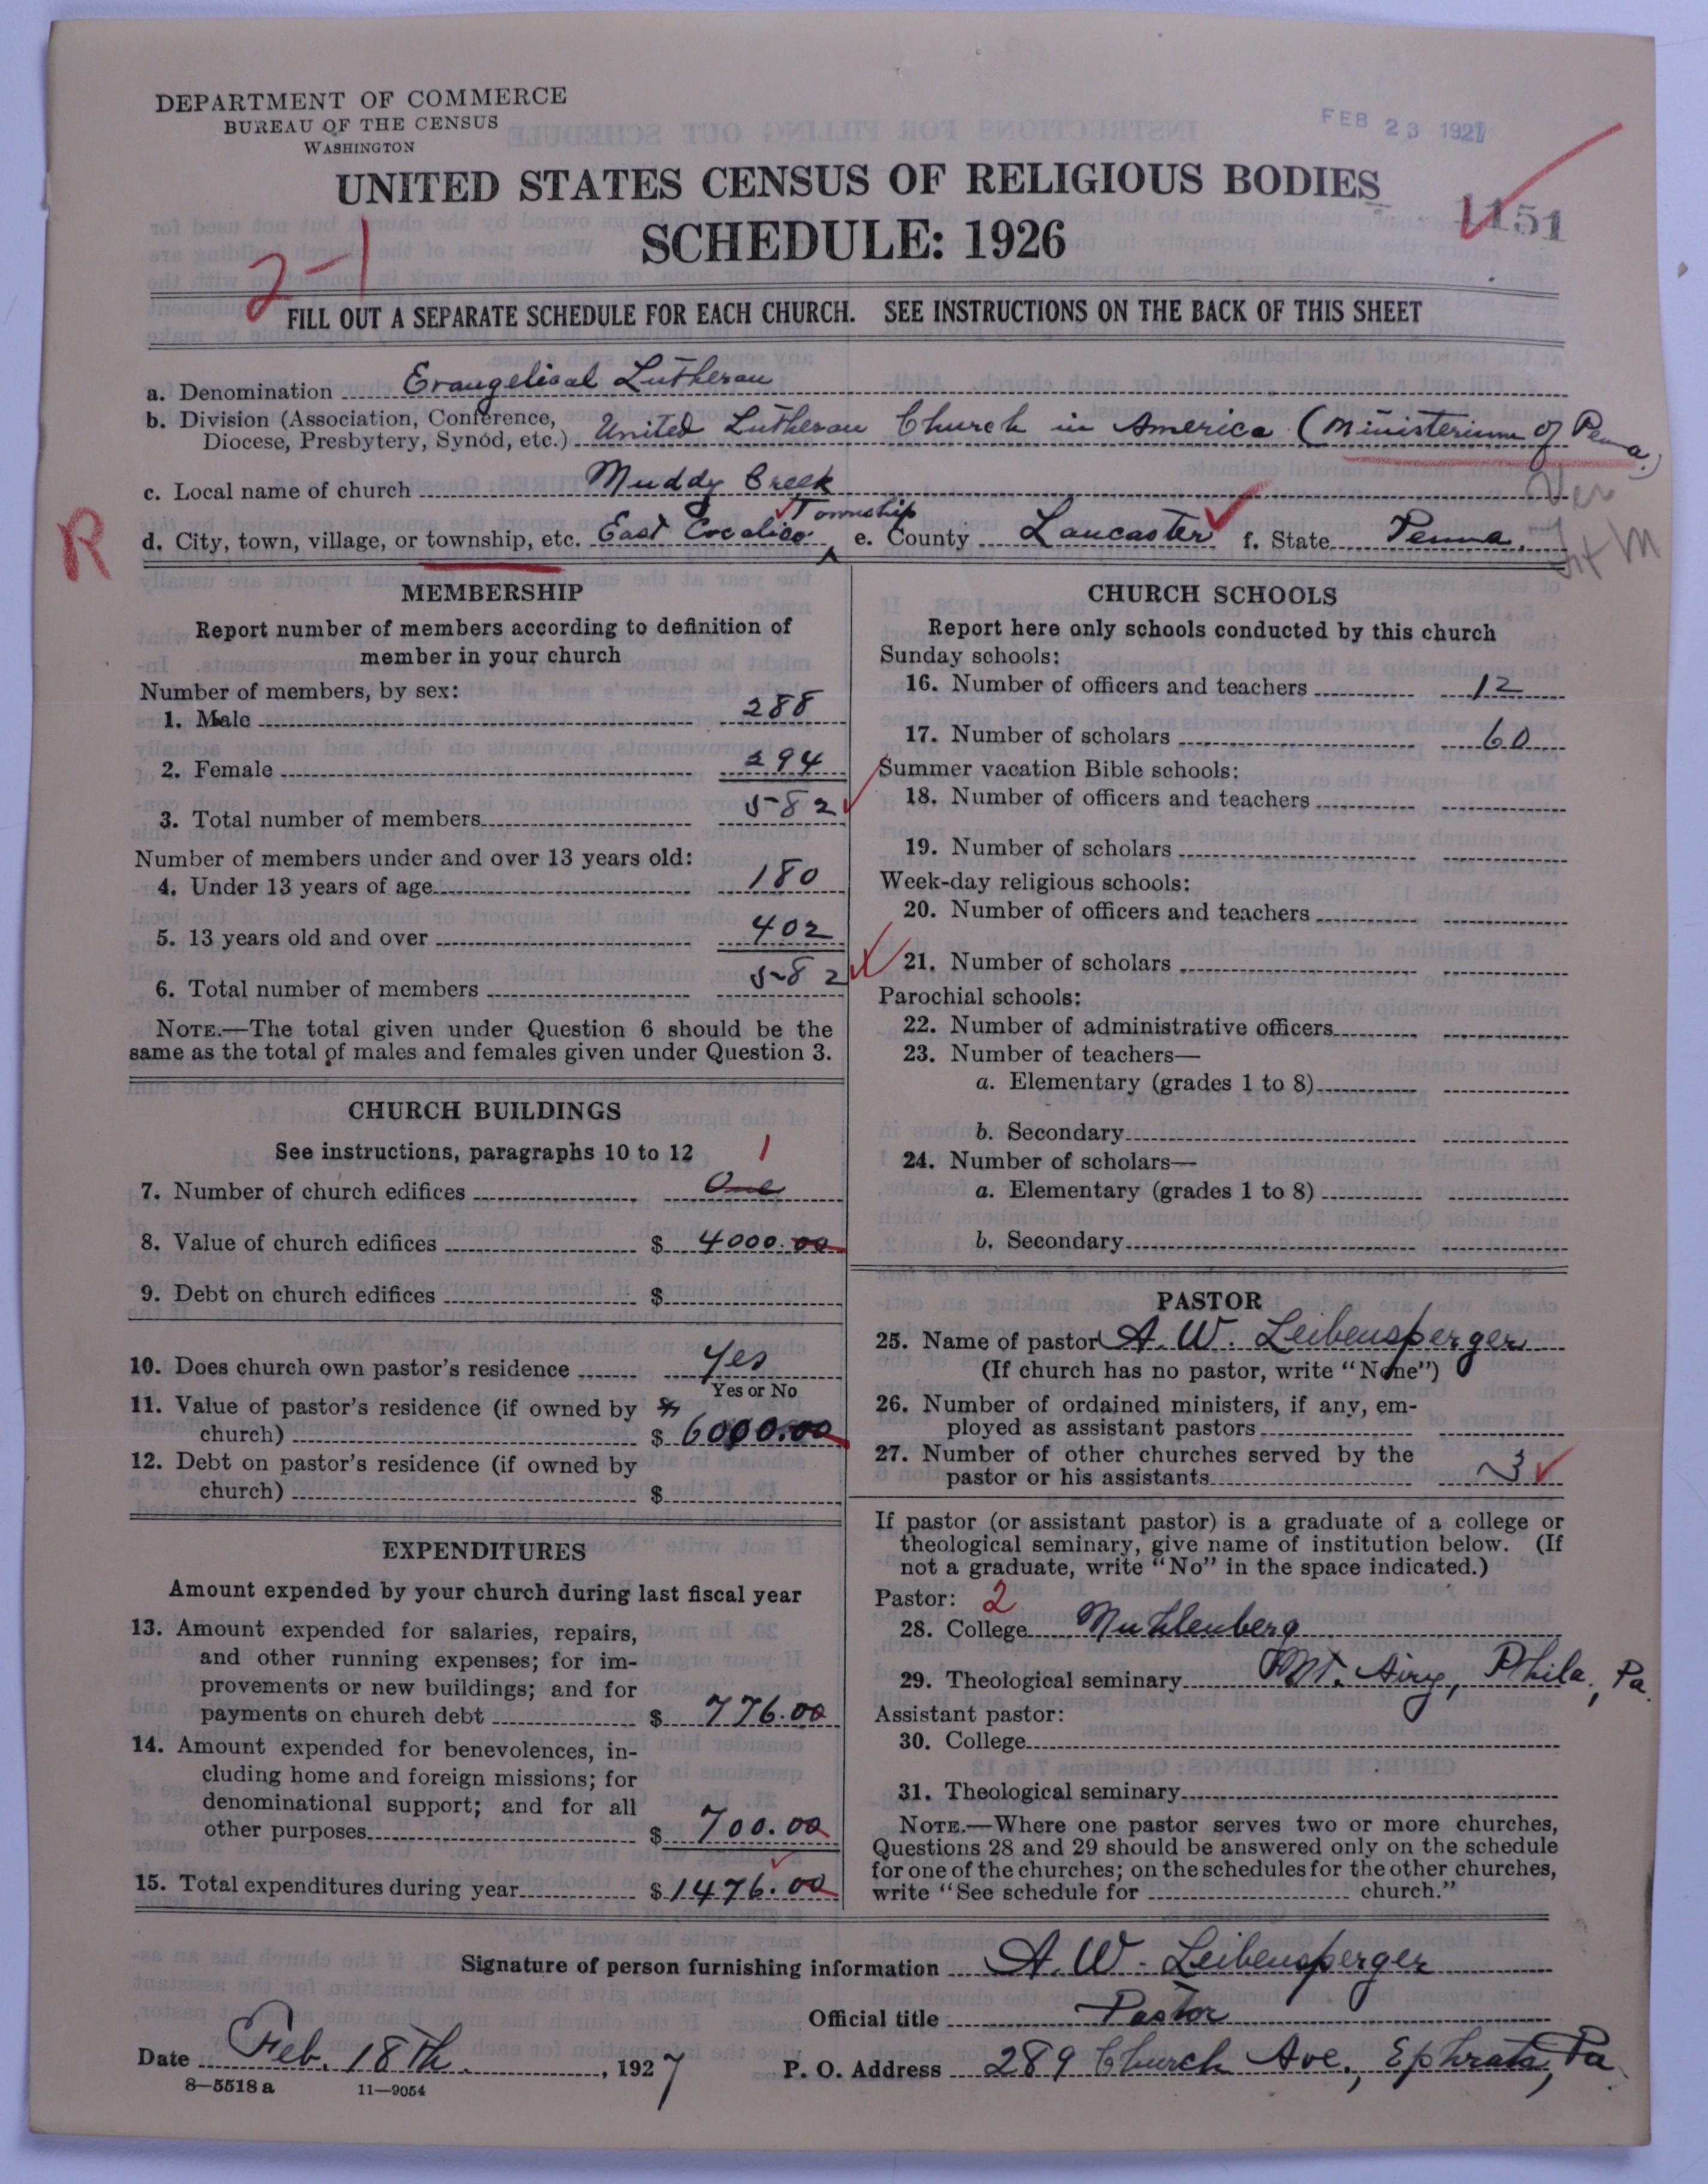 DEPARTMENT OF COMMERCE
BUREAU OF THE CENSUS
WASHINGTON
FEB 23 1927
UNITED STATES CENSUS OF RELIGIOUS BODIES
1151
SCHEDULE: 1926
2-1
FILL OUT A SEPARATE SCHEDULE FOR EACH CHURCH. SEE INSTRUCTIONS ON THE BACK OF THIS SHEET
a. Denomination Evangelical Lutheran
b. Division (Association, Conference,
Diocese, Presbytery, Synod, etc.) United Lutheran Church in America (Ministerium of Penna.)
c. Local name of church Muddy Creek
R
d. City, town, village, or township, etc. East Cocalico Township e. County Lancaster f. State Penna.
MEMBERSHIP
Report number of members according to definition of
member in your church
Number of members, by sex:
1. Male 288
2. Female 294
3. Total number of members 582
Number of members under and over 13 years old:
4. Under 13 years of age 180
5. 13 years old and over 402
6. Total number of members 582
NOTE.—The total given under Question 6 should be the
same as the total of males and females given under Question 3.
CHURCH BUILDINGS
See instructions, paragraphs 10 to 12
1
7. Number of church edifices One
8. Value of church edifices $ 4000.00
9. Debt on church edifices $
10. Does church own pastor's residence Yes
Yes or No
11. Value of pastor's residence (if owned by
church) $ 6000.00
12. Debt on pastor's residence (if owned by
church) $
EXPENDITURES
Amount expended by your church during last fiscal year
13. Amount expended for salaries, repairs,
and other running expenses; for im-
provements or new buildings; and for
payments on church debt $ 776.00
14. Amount expended for benevolences, in-
cluding home and foreign missions; for
denominational support; and for all
other purposes $ 700.00
15. Total expenditures during year $ 1476.00
CHURCH SCHOOLS
Report here only schools conducted by this church
Sunday schools:
16. Number of officers and teachers 12
17. Number of scholars 60
Summer vacation Bible schools:
18. Number of officers and teachers
19. Number of scholars
Week-day religious schools:
20. Number of officers and teachers
21. Number of scholars
Parochial schools:
22. Number of administrative officers
23. Number of teachers—
a. Elementary (grades 1 to 8)
b. Secondary
24. Number of scholars—
a. Elementary (grades 1 to 8)
b. Secondary
PASTOR
25. Name of pastor A. W. Leibensperger
(If church has no pastor, write "None")
26. Number of ordained ministers, if any, em-
ployed as assistant pastors
27. Number of other churches served by the
pastor or his assistants 3
If pastor (or assistant pastor) is a graduate of a college or
theological seminary, give name of institution below. (If
not a graduate, write "No" in the space indicated.)
Pastor: 2
28. College Muhlenberg
29. Theological seminary Mt. Airy, Phila., Pa.
Assistant pastor:
30. College
31. Theological seminary
NOTE.—Where one pastor serves two or more churches,
Questions 28 and 29 should be answered only on the schedule
for one of the churches; on the schedules for the other churches,
write "See schedule for church."
Signature of person furnishing information A. W. Leibensperger
Official title Pastor
Date Feb. 18Th., 1927 P. O. Address 289 Church Ave., Ephrata, Pa.
8—5518 a 11—9054